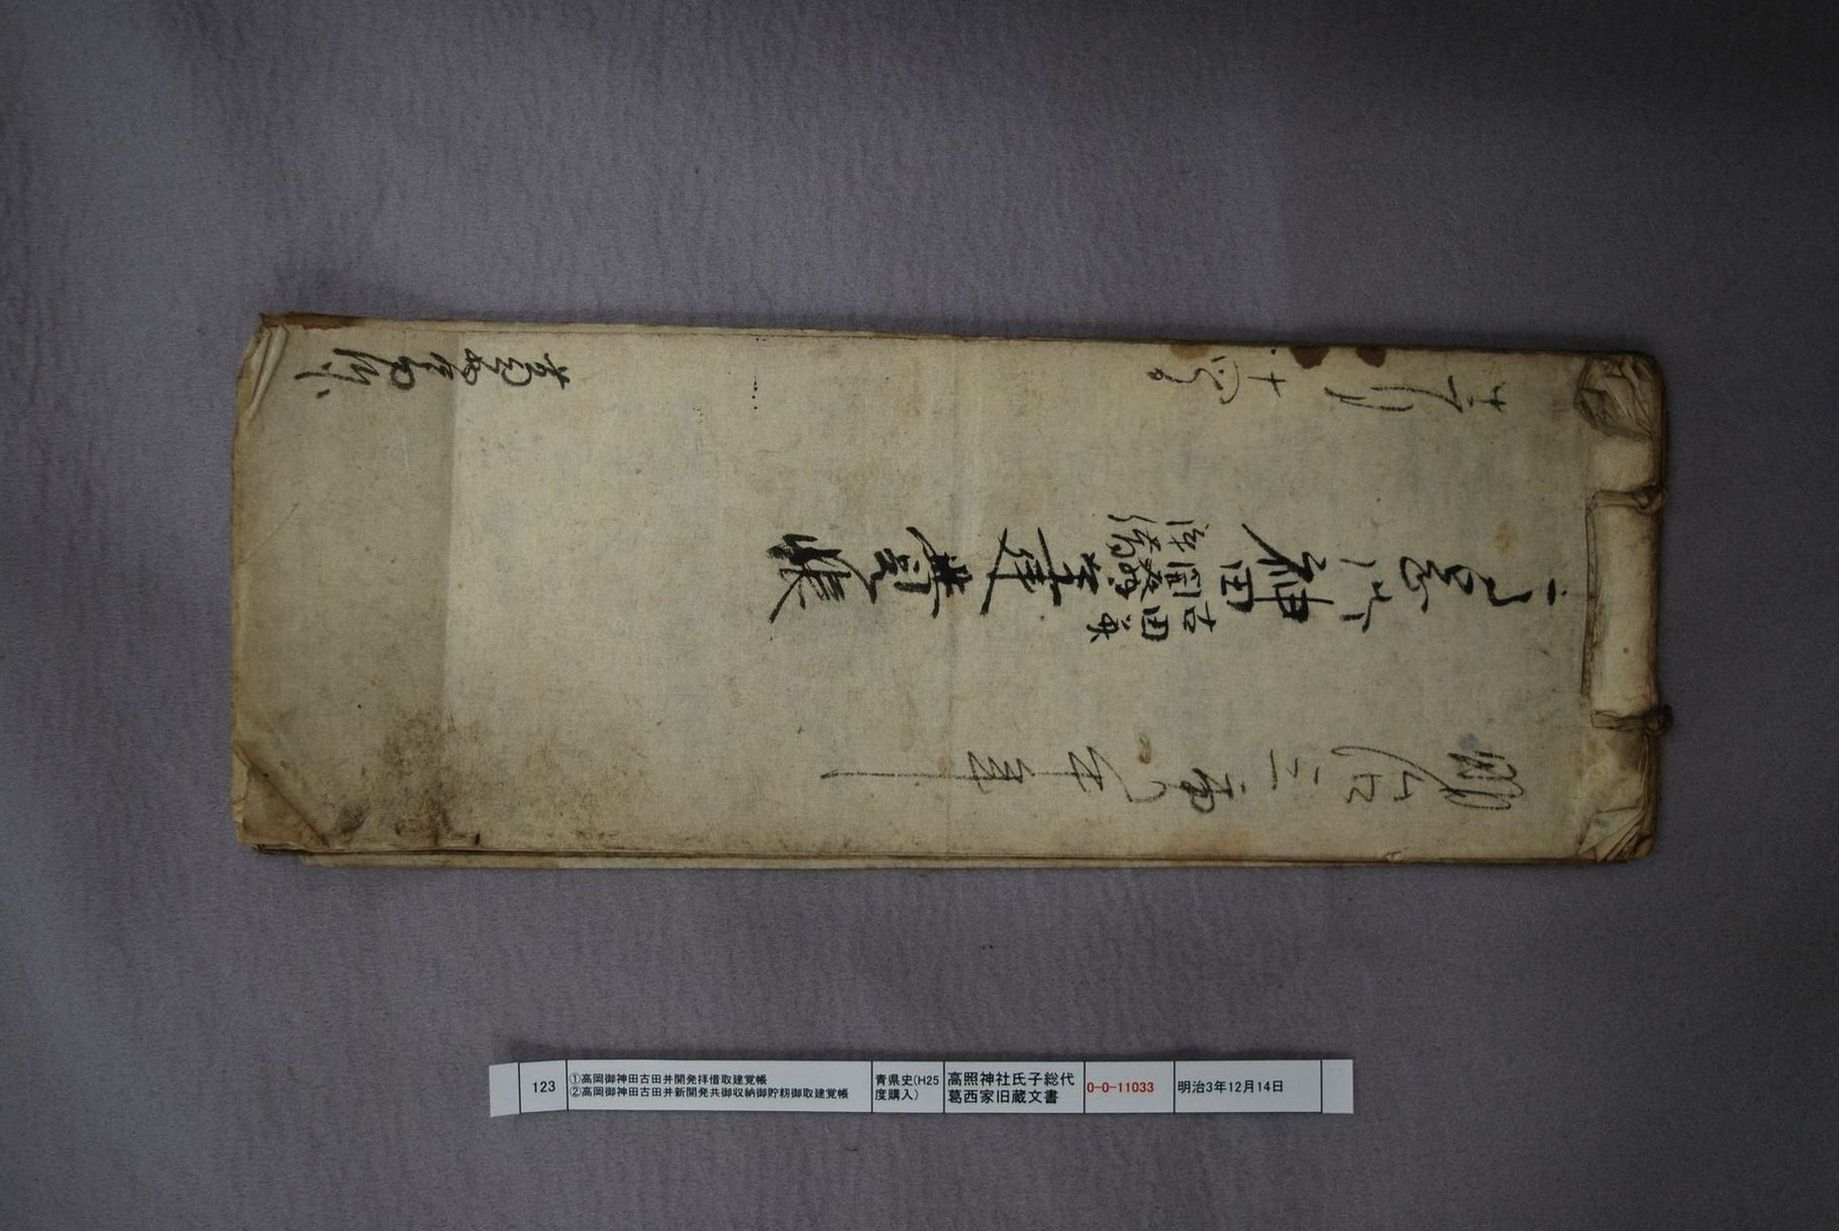 明治三庚午年
高岡御
神田
古田并
開発
拝借
取建覚帳
十二月
十四日
葛西
123
①高岡御神田古田并開発拝借取建覚帳
②高岡御神田古田并新開発共御収納御貯籾御取建覚帳
青県史(H25
度購入)
高照神社氏子総代
葛西家旧蔵文書
0-0-11033
明治3年12月14日